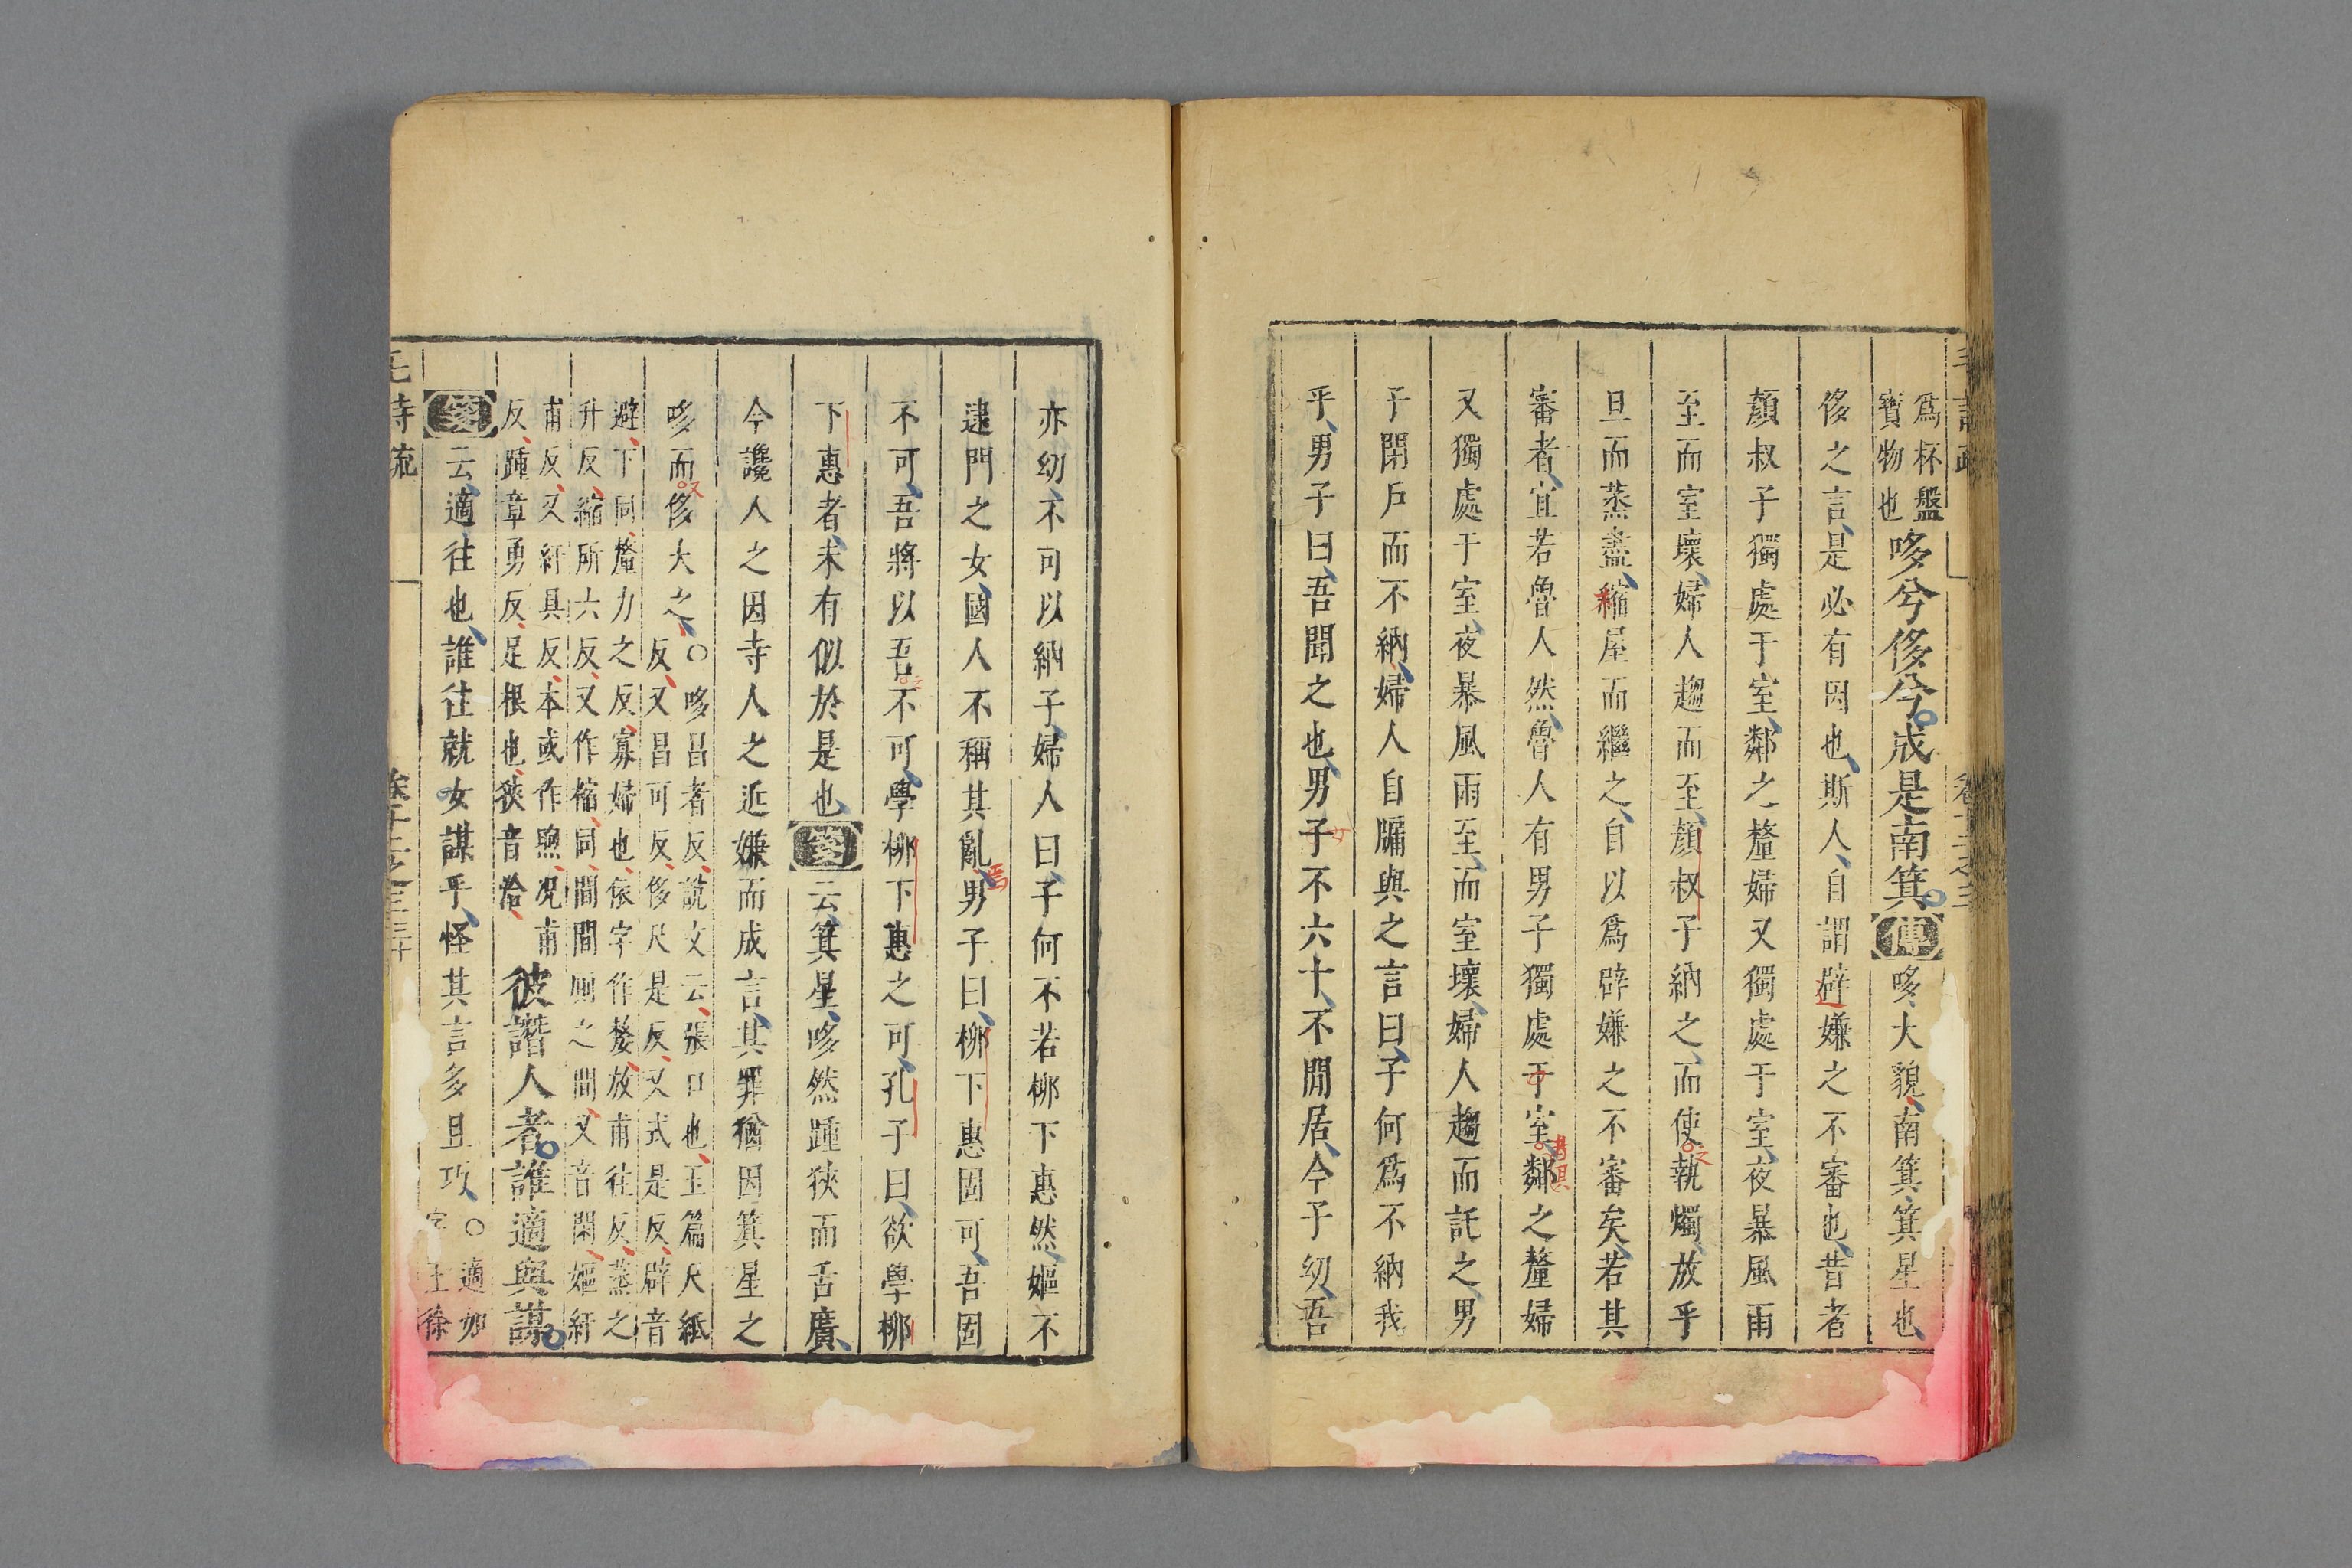 爲杯盤
寳物也
哆兮侈兮成是南箕傳哆大貌南箕箕星也
侈之言是必有因也斯人自謂辟嫌之不審也昔者
顏叔子獨處于室鄰之釐婦又獨處于室夜暴風雨
至而室壞婦人趨而至顏叔子納之而使執燭放乎
旦而蒸盡縮屋而繼之自以爲辟嫌之不審矣若其
審者宜若魯人然魯人有男子獨處于室鄰之釐婦
又獨處于室夜暴風雨至而室壞婦人趨而託之男
子閉戶而不納婦人自牖與之言曰子何爲不納我
乎男子曰吾聞之也男子不六十不閒居今子幼吾
亦幼不可以納子婦人曰子何不若柳下惠然嫗不
逮門之女國人不稱其亂男子曰柳下惠固可吾固
不可吾將以吾不可學柳下惠之可孔子曰欲學柳
下惠者未有似於是也箋云箕星哆然踵狹而舌廣
今讒人之因寺人之近嫌而成言其罪猶因箕星之
哆而侈大之
○哆昌者反說文云張口也玉篇尺紙
反又昌可反侈尺是反又式是反辟音
避下同釐力之反寡婦也依字作嫠放甫往反蒸之
升反縮所六反又作樎同間間厠之間又音閑嫗紆
甫反又紆具反本或作煦况甫
反踵章勇反足根也狹音洽
彼譖人者誰適與謀
箋云適往也誰往就女謀乎怪其言多且巧
○適如
字王徐
毛詩疏
卷十二之三